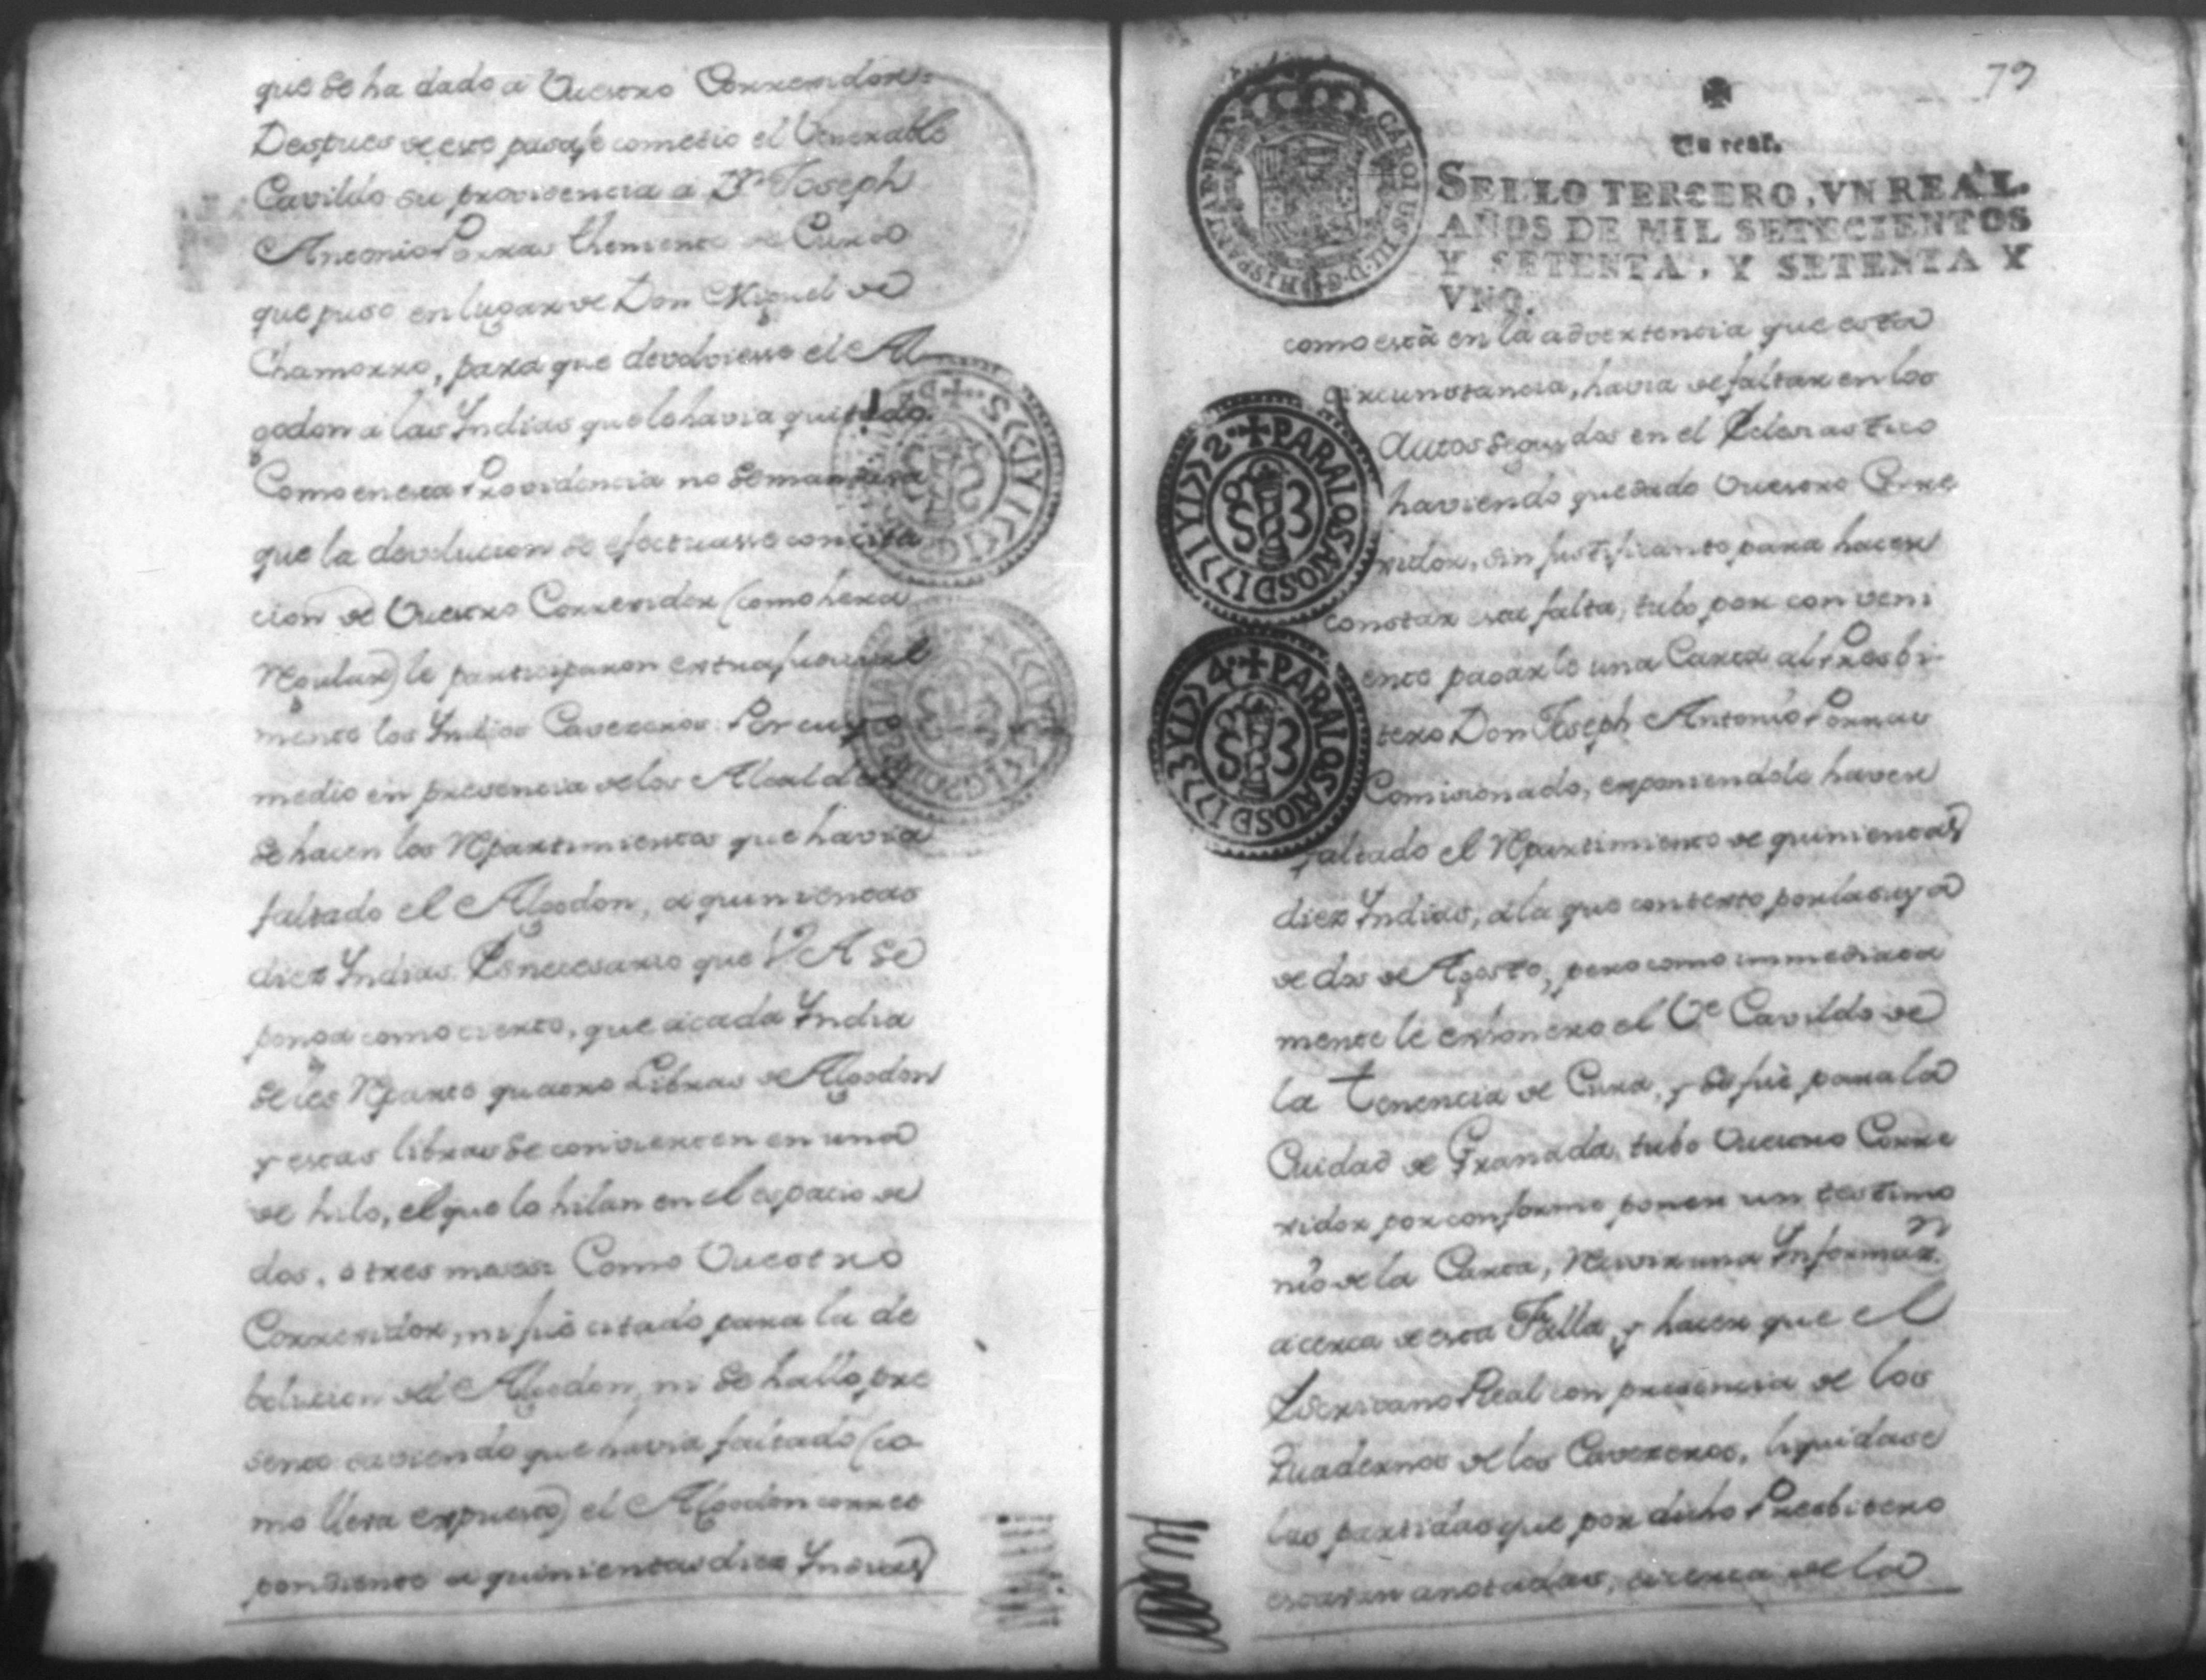 que se ha dado a Vuestro Corregidor=
Despues de este pasaje cometio el Venerable
Cavildo su providencia a Dn Joseph
Antonio Porras theniente de Cura
que puso en lugar de Don Miguel de
Chamorro, para que devolviesse el Al
godon a las Indias que lo havia quitado.
Como en esta Providencia no se mandava
que la devolucion se efectuasse con cita
cion de Vuestro Corregidor (como hera
Regular) le participaron extrajudicial
mente los Indios Caveceros. Por cuyo
medio en presencia de los Alcaldes
se hacen los Repartimientos que havia
faltado el Algodon, a quinientas
diez Indias. Es necesario que V A se
ponga como cierto, que a cada India
se les Reparte quatro Libras de Algodon
y estas libras se convierten en una
de hilo, el que lo hilan en el espacio de
dos, o tres meses: Como Vuestro
Corregidor, ni fuè citado para la de
bolucion del Algodon, ni se hallò pre
sente saviendo que havia faltado (co
mo lleva expuesto) el Algodon corres
pondiente a quinientas diez Indias
79
Un real.
SELLO TERCERO, VN REAL.
AÑOS DE MIL SETECIENTOS
Y SETENTA, Y SETENTA Y
VNO.
CAROLUS III D G HISPANIAR REX
como està en la advertencia que esta
circunstancia, havia de faltar en los
Autos seguidos en el Eclesiastico
haviendo quedado Vuestro Corre
gidor, sin justificante para hacer
constar esta falta, tubo por conveni
ente pasarle una Carta al Presbi-
tero Don Joseph Antonio Porras
Comisionado, exponiendole haver
faltado el Repartimiento de quinientas
diez Indias, a la que contesto por la suya
de dos de Agosto, pero como immediata
mente le exhonero el Ve Cavildo de
la tenencia de Cura, y se fuè para la
Ciudad de Granada, tubo Vuestro Corre
gidor por conforme poner un testimo
nio de la Carta, Recivir una Informazn.
acerca de esta Falla, y hacer que el
Escrivano Real con presencia de los
Quadernos de los Caveceros, liquidase
las partidas que por dicho Presbitero
estavan anotadas, acerca de la
+PARALOS AÑOS D 1771 Y 1772
S 3
+PARALOS AÑOS D 1773 Y 1774
S 3